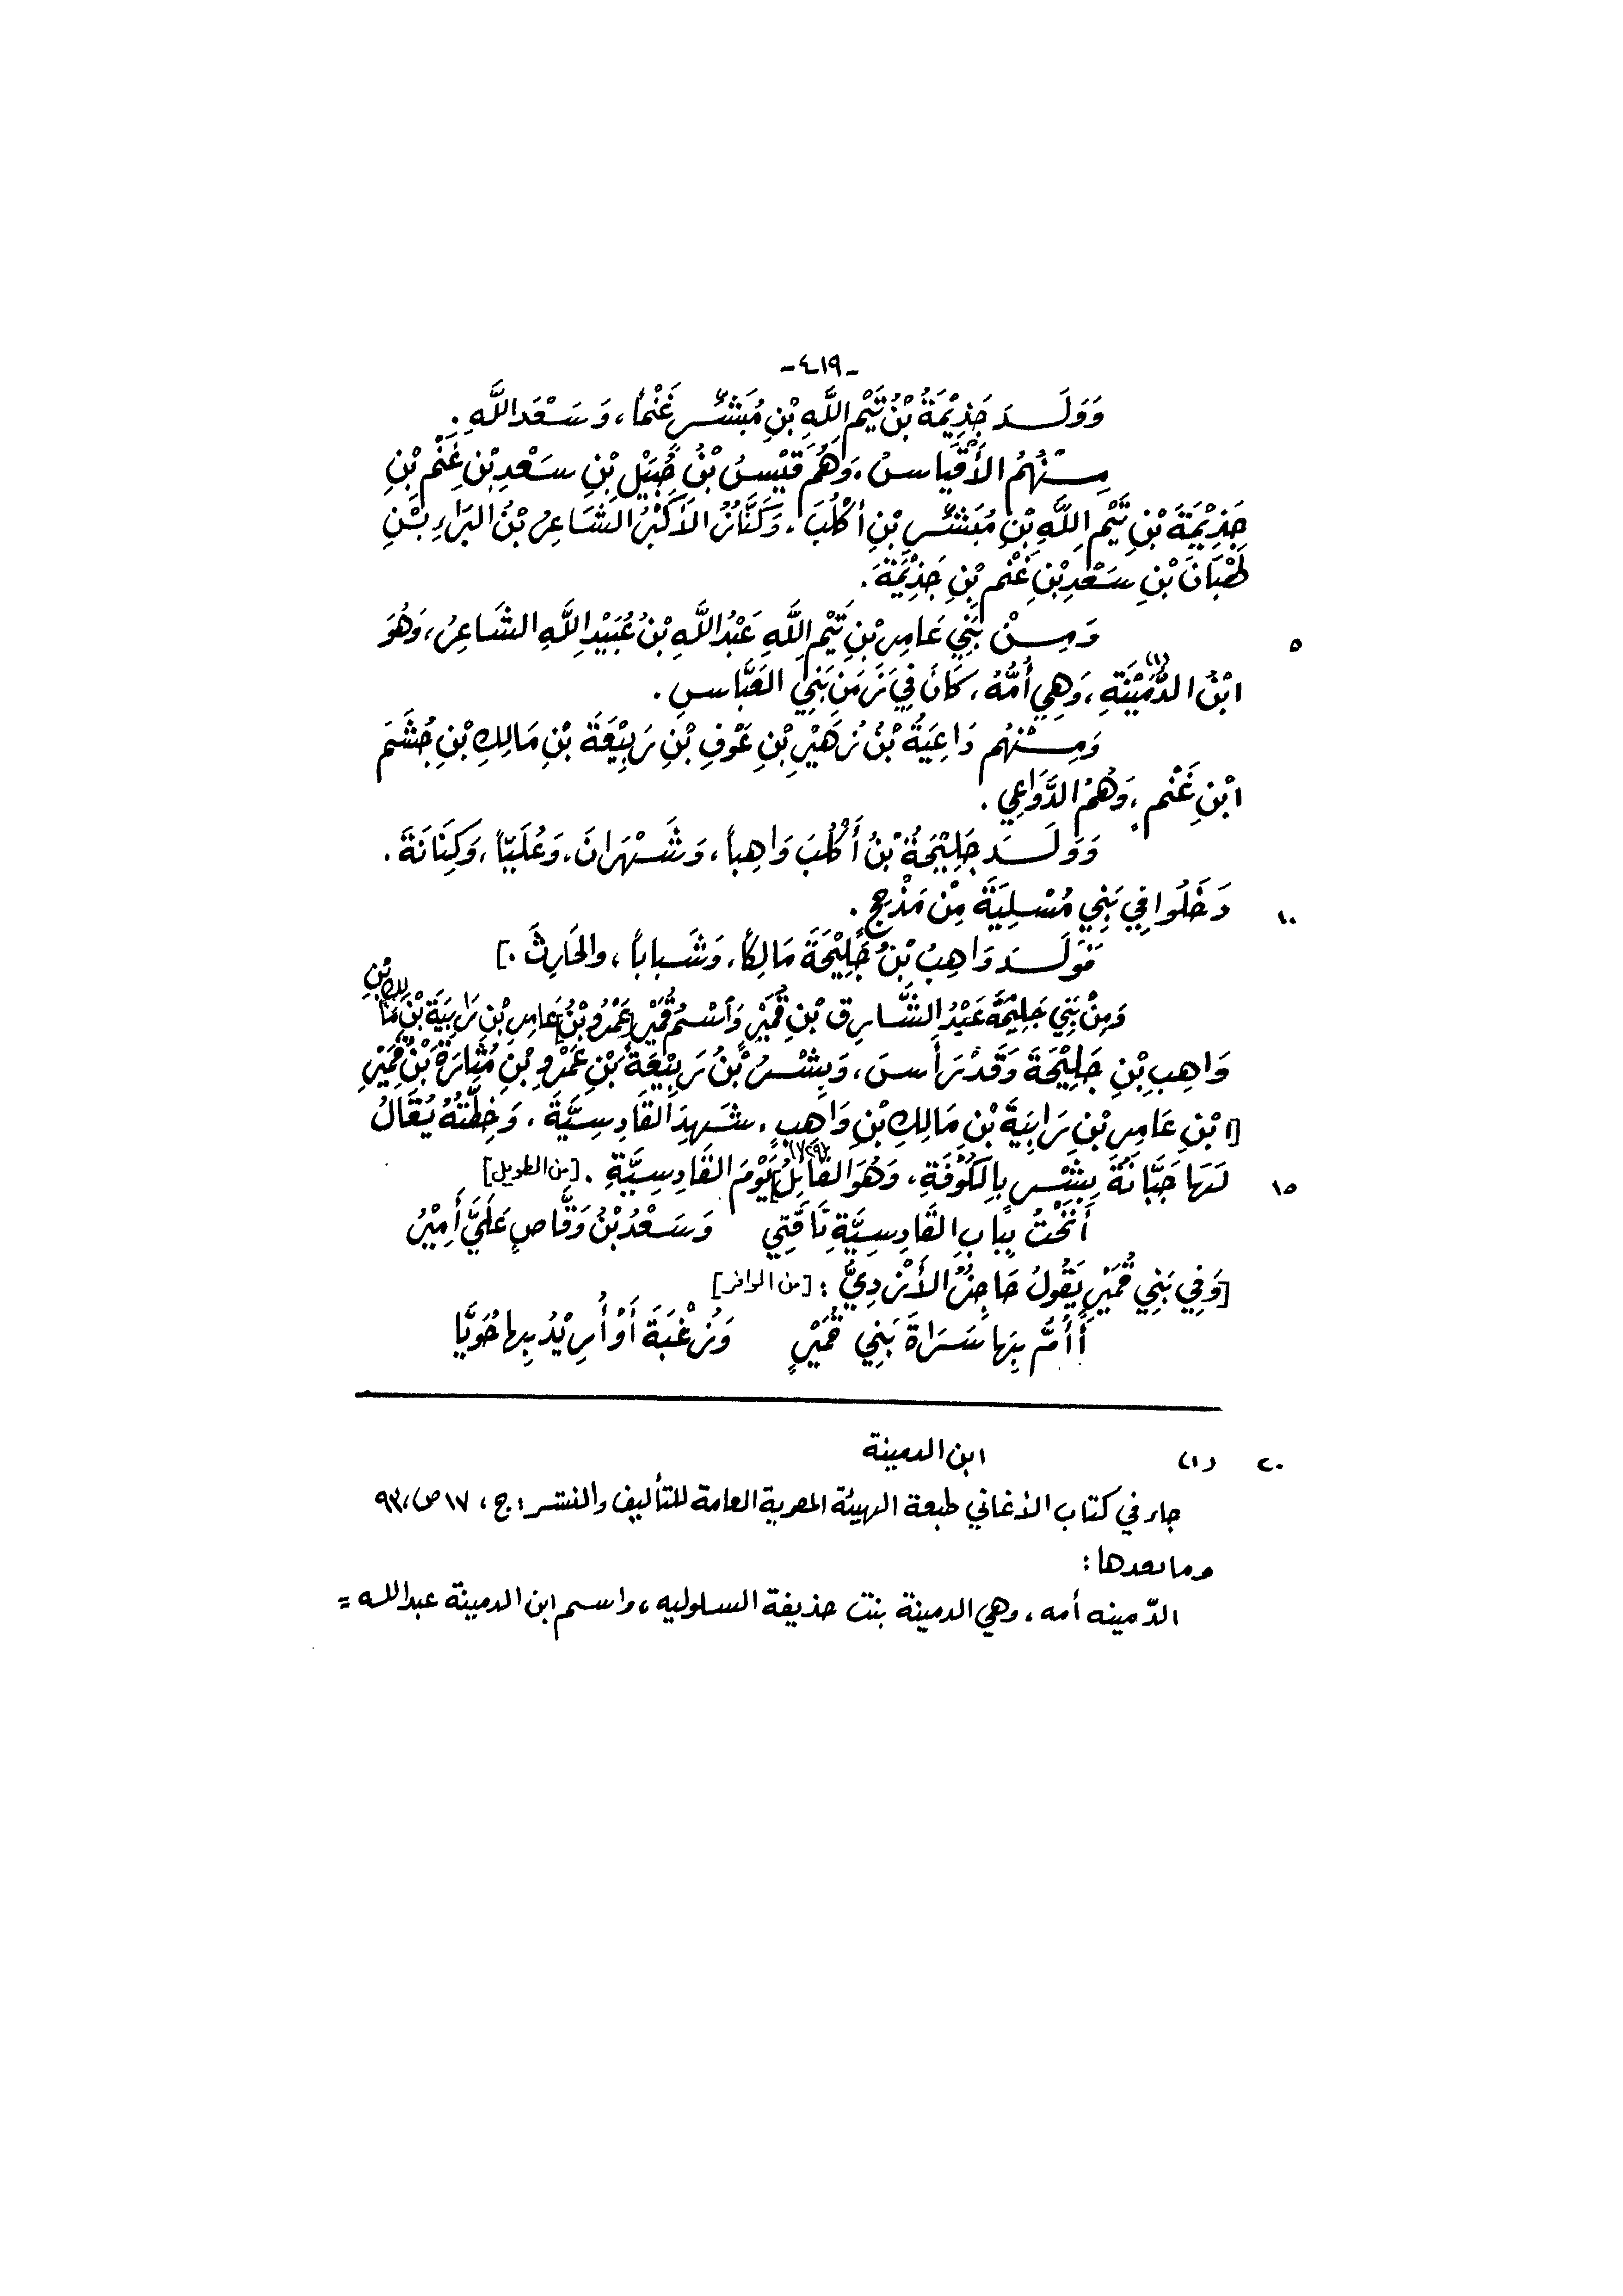 -٤١٩-
وَوَلَدَ جَذِيْمَةُ بْنُ تَيْمِ اللَّهِ بْنِ مُبَشِّرٍ غَنْماً، وَسَعْدَ اللَّهِ.
مِنْهُمُ الأَقْيَاسُ، وَهُمْ قَيْسُ بْنُ جُبَيْلِ بْنِ سَعْدِ بْنِ غَنْمِ بْنِ
جَذِيْمَةَ بْنِ تَيْمِ اللَّهِ بْنِ مُبَشِّرِ بْنِ أَكْلُبَ، وَكَنَّازُ الأَكْبَرُ الشَّاعِرُ بْنُ البَرَاءِ بْنِ
ظَبْيَانَ بْنِ سَعْدِ بْنِ غَنْمِ بْنِ جَذِيْمَةَ.
٥ وَمِنْ بَنِي عَامِرِ بْنِ تَيْمِ اللَّهِ عَبْدُ اللَّهِ بْنُ عُبَيْدِ اللَّهِ الشَّاعِرُ، وَهُوَ
ابْنُ الدُّمَيْنَةِ(١)، وَهِيَ أُمُّهُ، كَانَ فِي زَمَنِ بَنِي العَبَّاسِ.
وَمِنْهُم دَاعِيَةُ بْنُ زُهَيْرِ بْنِ عَوْفِ بْنِ رَبِيْعَةَ بْنِ مَالِكِ بْنِ جُشَمَ
ابْنِ غَنْمٍ، وَهُمُ الدَّوَاعِي.
وَوَلَدَ جَلِيْحَةُ بْنُ أَكْلُبَ وَاهِباً، وَشَهْرَانَ، وَعُلَيّاً، وَكِنَانَةَ.
١٠ دَخَلُوا فِي بَنِي مُسْلِيَةَ مِنْ مَذْحِجٍ.
فَوَلَدَ وَاهِبُ بْنُ جَلِيْحَةَ مَالِكاً، وَشَبَاباً، والحَارِثَ.]
وَمِنْ بَنِي جَلِيْحَةَ عَبْدُ الشَّارِقِ بْنِ قُمَيْرٍ وَاسْمُ قُمَيْرٍ [عَمْرُو بْنُ] عَامِرِ بْنِ رَابِيَةَ بْنِ مَالِكِ بْنِ
وَاهِبِ بْنِ جَلِيْحَةَ وَقَدْ رَأَسَ، وَبِشْرُ بْنُ رَبِيْعَةَ بْنِ عَمْرِو بْنِ مُثَارَةَ بْنِ قُمَيْرِ
[ابْنِ عَامِرِ بْنِ رَابِيَةَ بْنِ مَالِكِ بْنِ وَاهِبٍ، شَهِدَ القَادِسِيَّةَ، وَخِطَّتُهُ يُقَالُ
١٥ لَهَا جَبَّانَةُ بِشْرٍ بِالكُوْفَةِ، وَهُوَ القَائِلُ] يَوْمَ القَادِسِيَّةِ. [من الطويل]
أَنَخْتُ بِبَابِ القَادِسِيَّةِ نَاقَتِي وَسَعْدُ بْنُ وَقَّاصٍ عَلَيَّ أَمِيْرُ
[وَفِي بَنِي قُمَيْرٍ يَقُولُ حَاجِزُ الأَزْدِيُّ: [من الوافر]
أَأُمُّ بِهَا سَرَاةَ بَنِي قُمَيْرٍ وَزُغْبَةَ أَوْ أُرِيْدُ بِهَا حُوَيَّا
٢٠ (١) ابن الدمينة
جاء في كتاب الأغاني طبعة الهيئة المصرية العامة للتأليف والنشر: ج، ١٧ ص، ٩٣
وما بعدها:
الدّمينه أمه، وهي الدمينة بنت حذيفة السلوليه، واسم ابن الدمينة عبد الله =